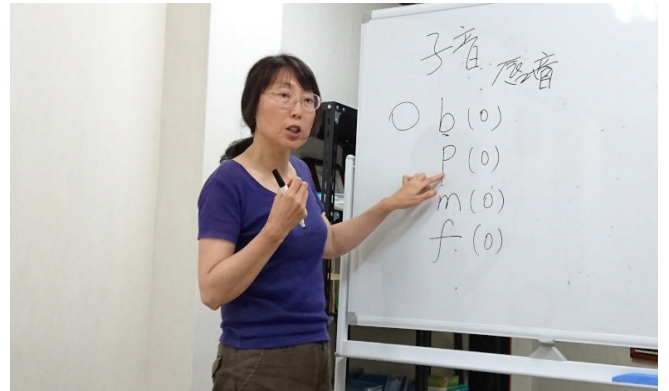 子音 感音
○ b (o)
p (o)
m (o)
f (o)